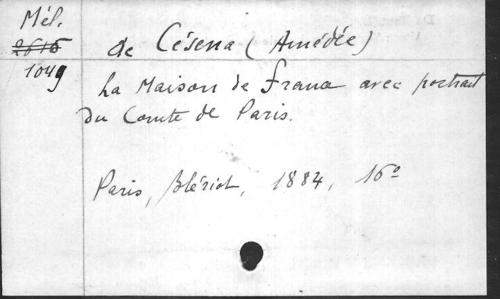 Mél.
2616
1049
de Césena (Amédée)
La Maison de France avec portrait
du Comte de Paris.
Paris, Blériot, 1884, 16°